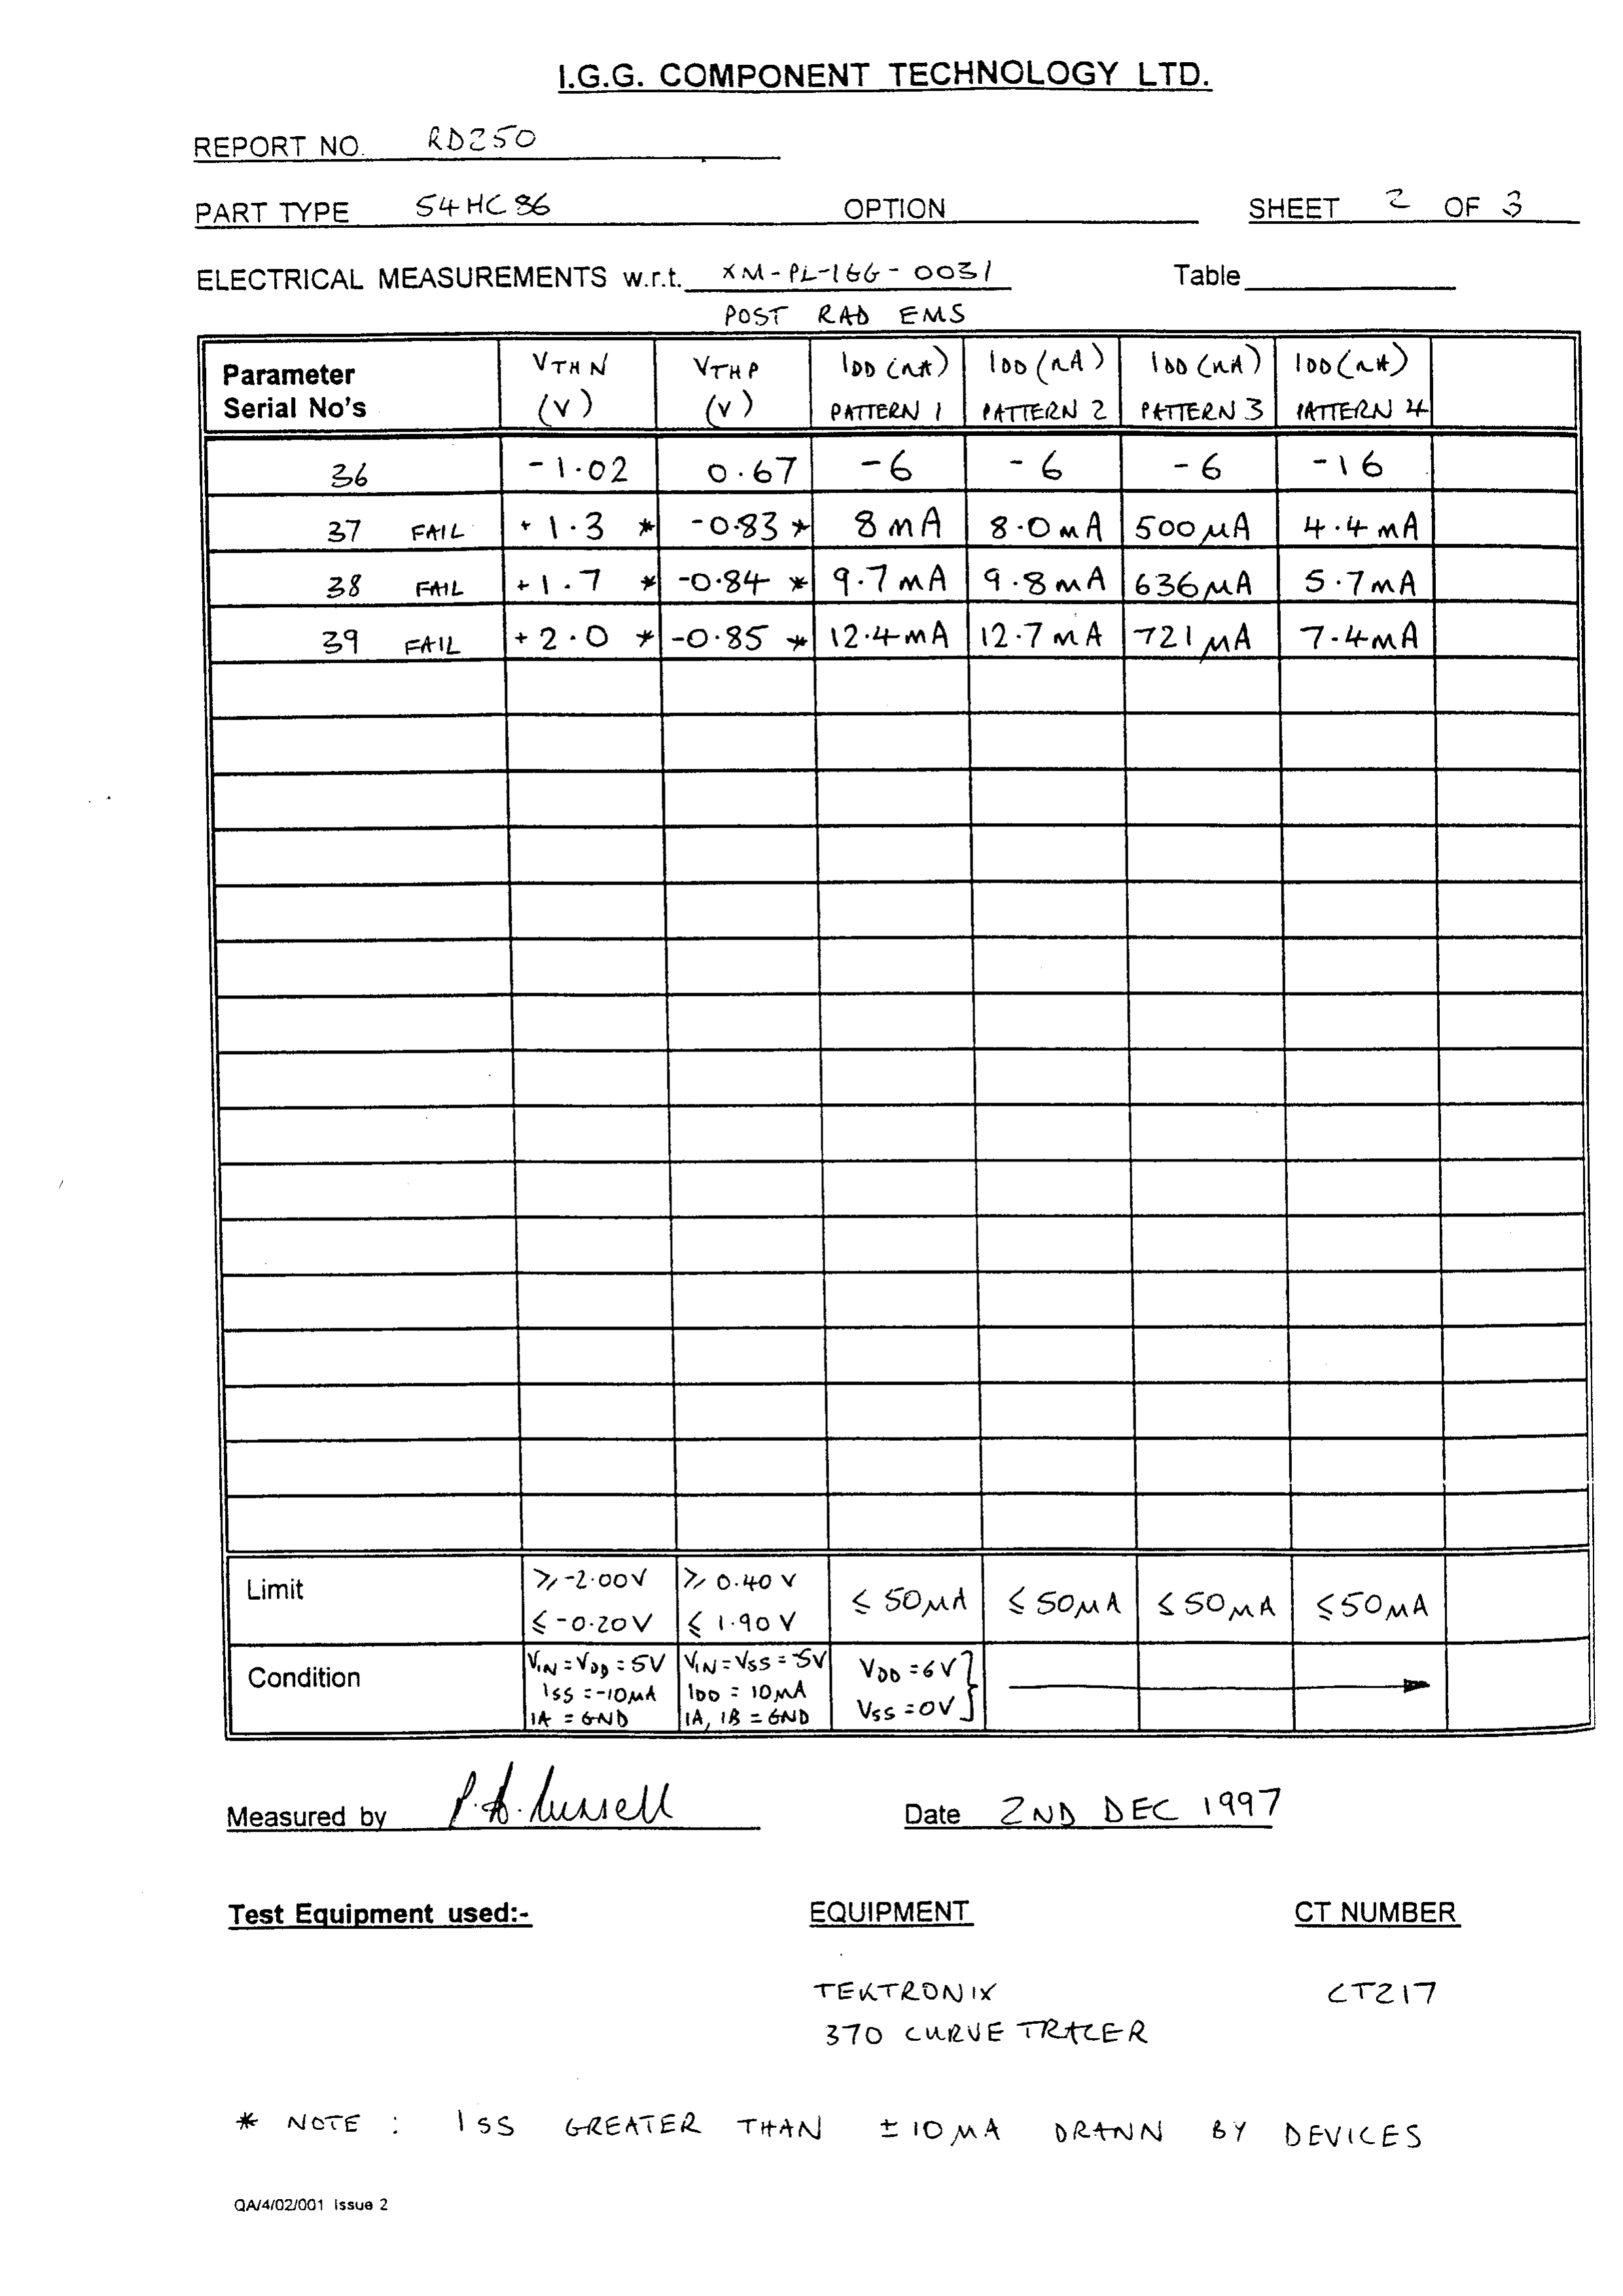 I.G.G. COMPONENT TECHNOLOGY LTD.
REPORT NO. RD250
PART TYPE 54HC86 OPTION SHEET 2 OF 3
ELECTRICAL MEASUREMENTS w.r.t. XM-PL-IGG-0031 Table
POST RAD EMS
Parameter Serial No's VTHN (V) VTHP (V) IDD (nA) PATTERN 1 IDD (nA) PATTERN 2 IDD (nA) PATTERN 3 IDD (nA) PATTERN 4
36 -1.02 0.67 -6 -6 -6 -16
37 FAIL +1.3 * -0.83 * 8mA 8.0mA 500µA 4.4mA
38 FAIL +1.7 * -0.84 * 9.7mA 9.8mA 636µA 5.7mA
39 FAIL +2.0 * -0.85 * 12.4mA 12.7mA 721µA 7.4mA
Limit ≥ -2.00V ≤ -0.20V ≥ 0.40V ≤ 1.90V ≤ 50µA ≤ 50µA ≤ 50µA ≤ 50µA
Condition VIN = VDD = 5V ISS = -10µA 1A = GND VIN = VSS = -5V IDD = 10µA 1A, 1B = GND VDD = 6V VSS = 0V
Measured by P.A. Russell Date 2ND DEC 1997
Test Equipment used:- EQUIPMENT CT NUMBER
TEKTRONIX CT217
370 CURVE TRACER
* NOTE : ISS GREATER THAN ±10µA DRAWN BY DEVICES
QA/4/02/001 Issue 2